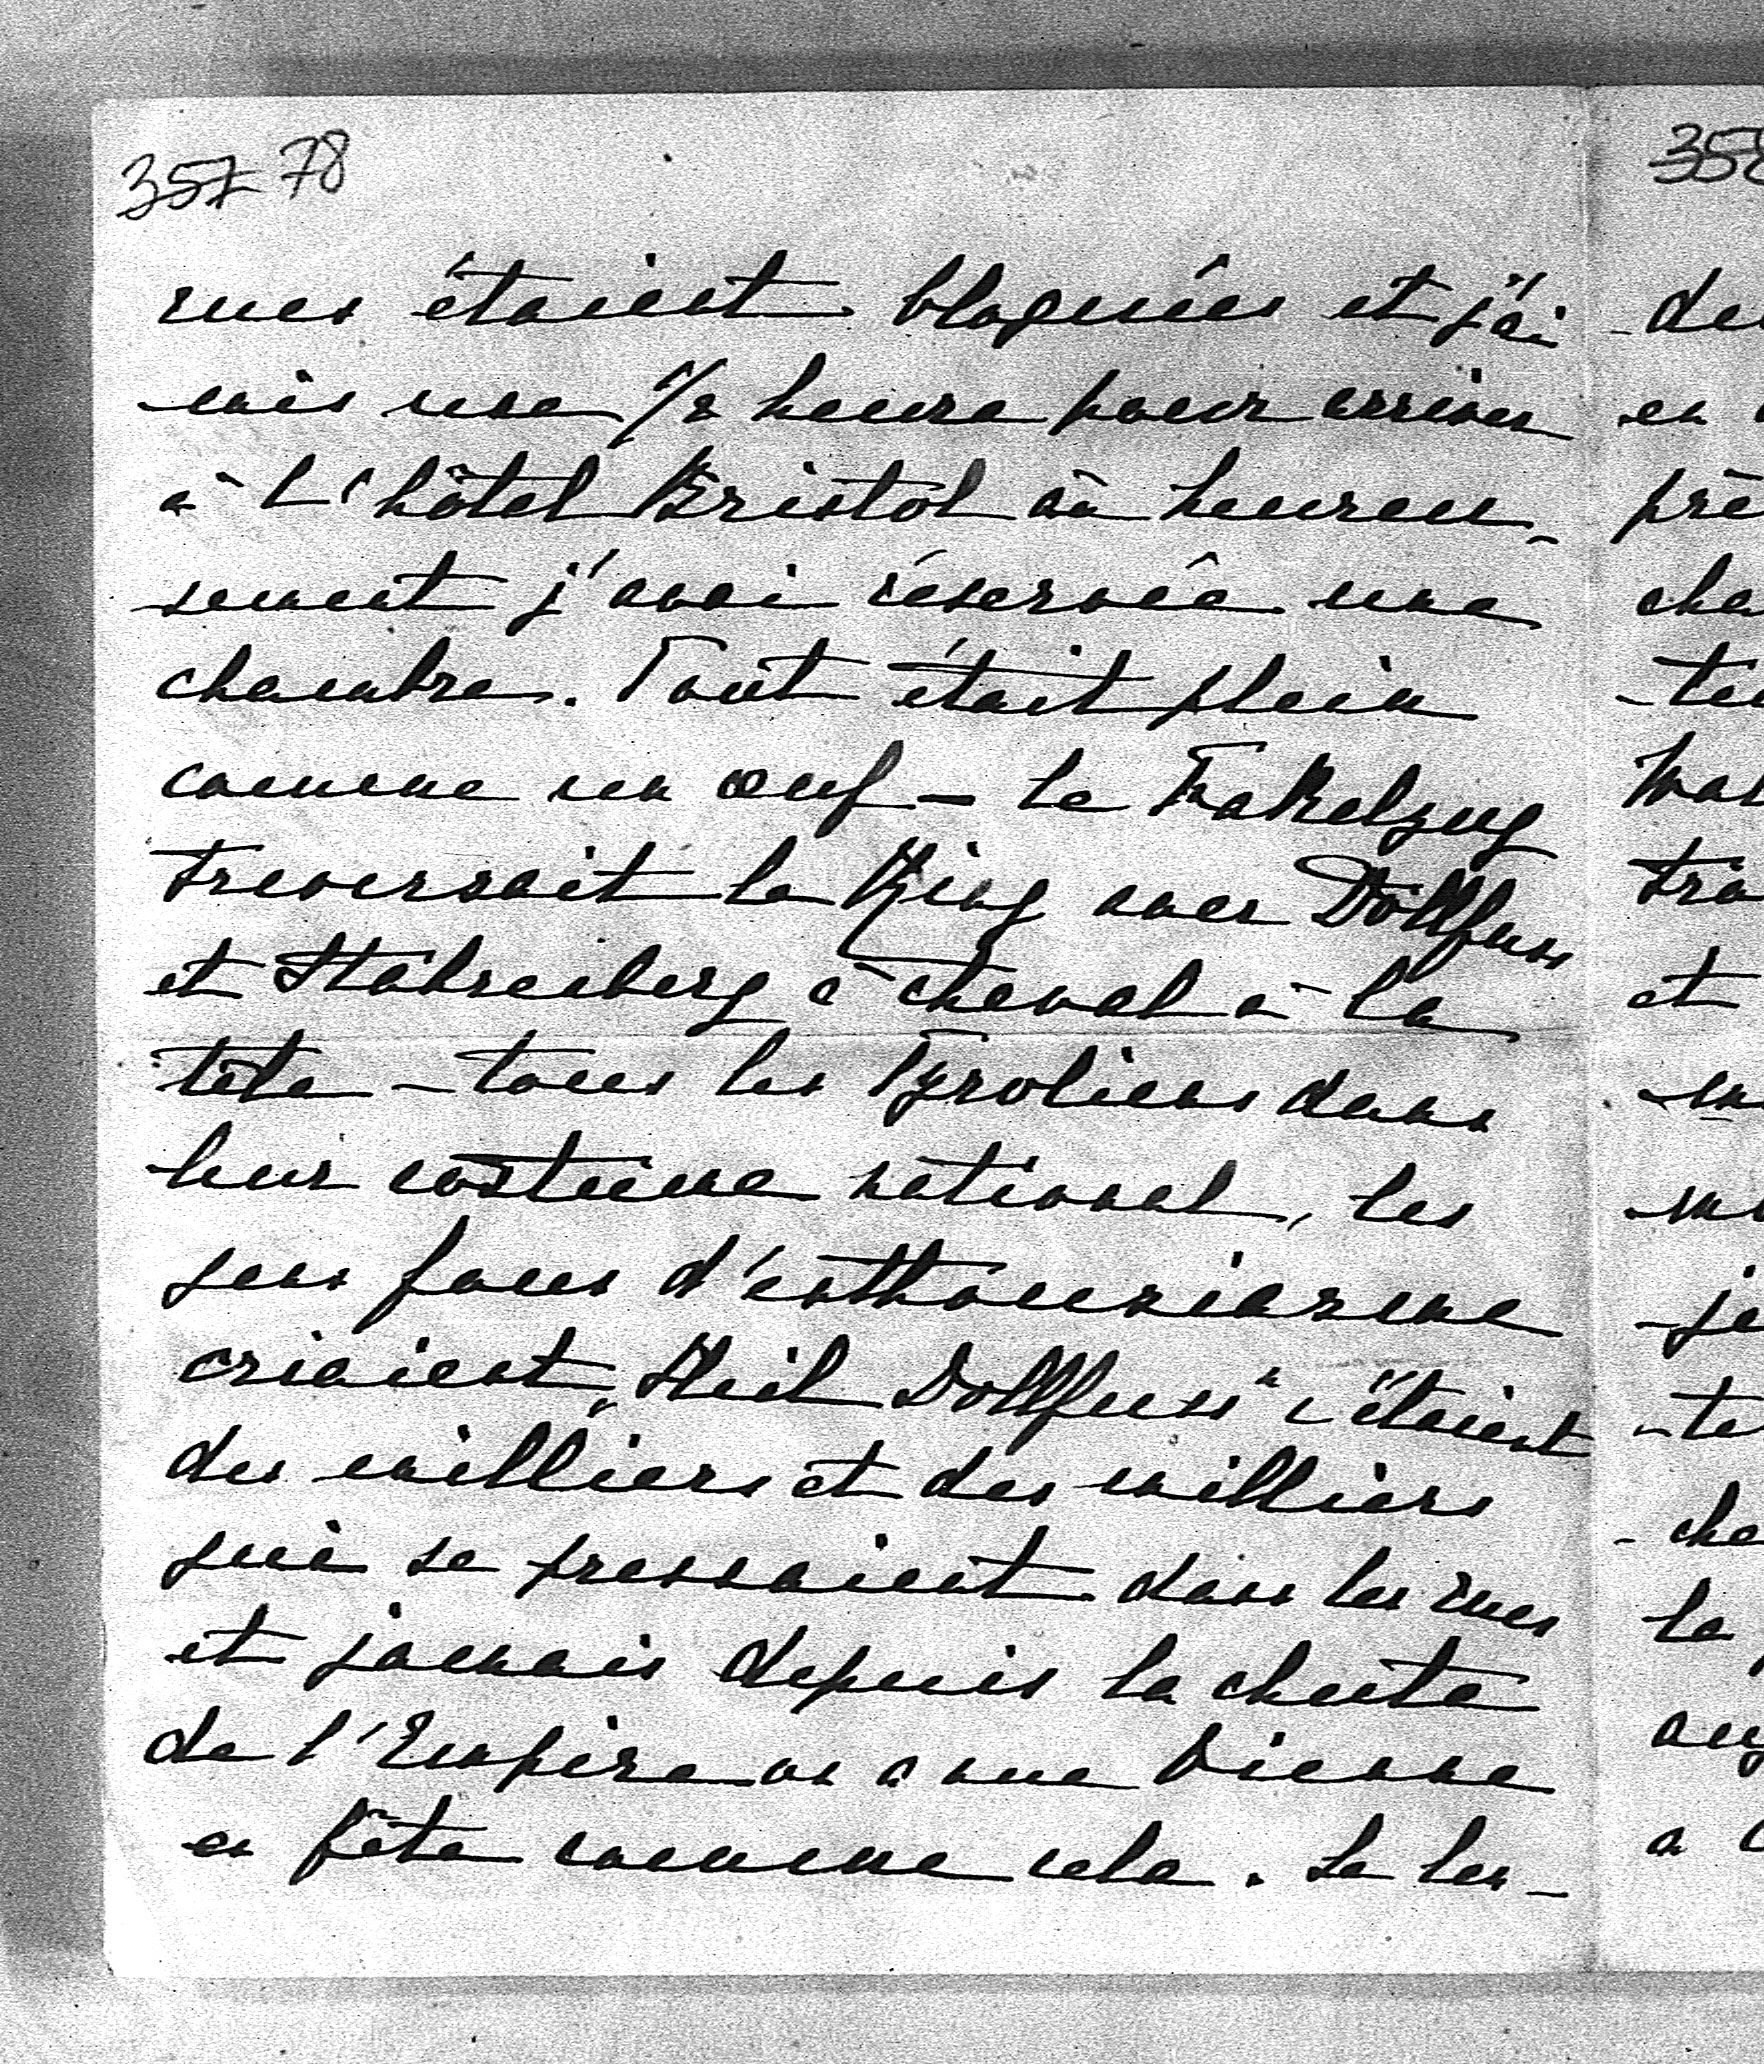 357 78
rues étaient bloquées et j'ai
mis une 1/2 heure pour arriver
à l'hôtel Bristol où heureu-
sement j'avai réservée une
chambre. Tout était plein
comme un œuf - le Fakelzug
traversait le Ring avec Dollfuss
et Stahremberg à cheval à la
tête - tous les Tyroliens dans
leur costume national, les
gens fous d'enthousiasme
criaient „Heil Dollfuss" c'étaient
des milliers et des milliers
qui se pressaient dans les rues
et jamais depuis la chute
de l'Empire on a vue Vienne
en fête comme cela. Le len-
358
de
en
prê
cha
te
tra
et
je
te
che
la
a